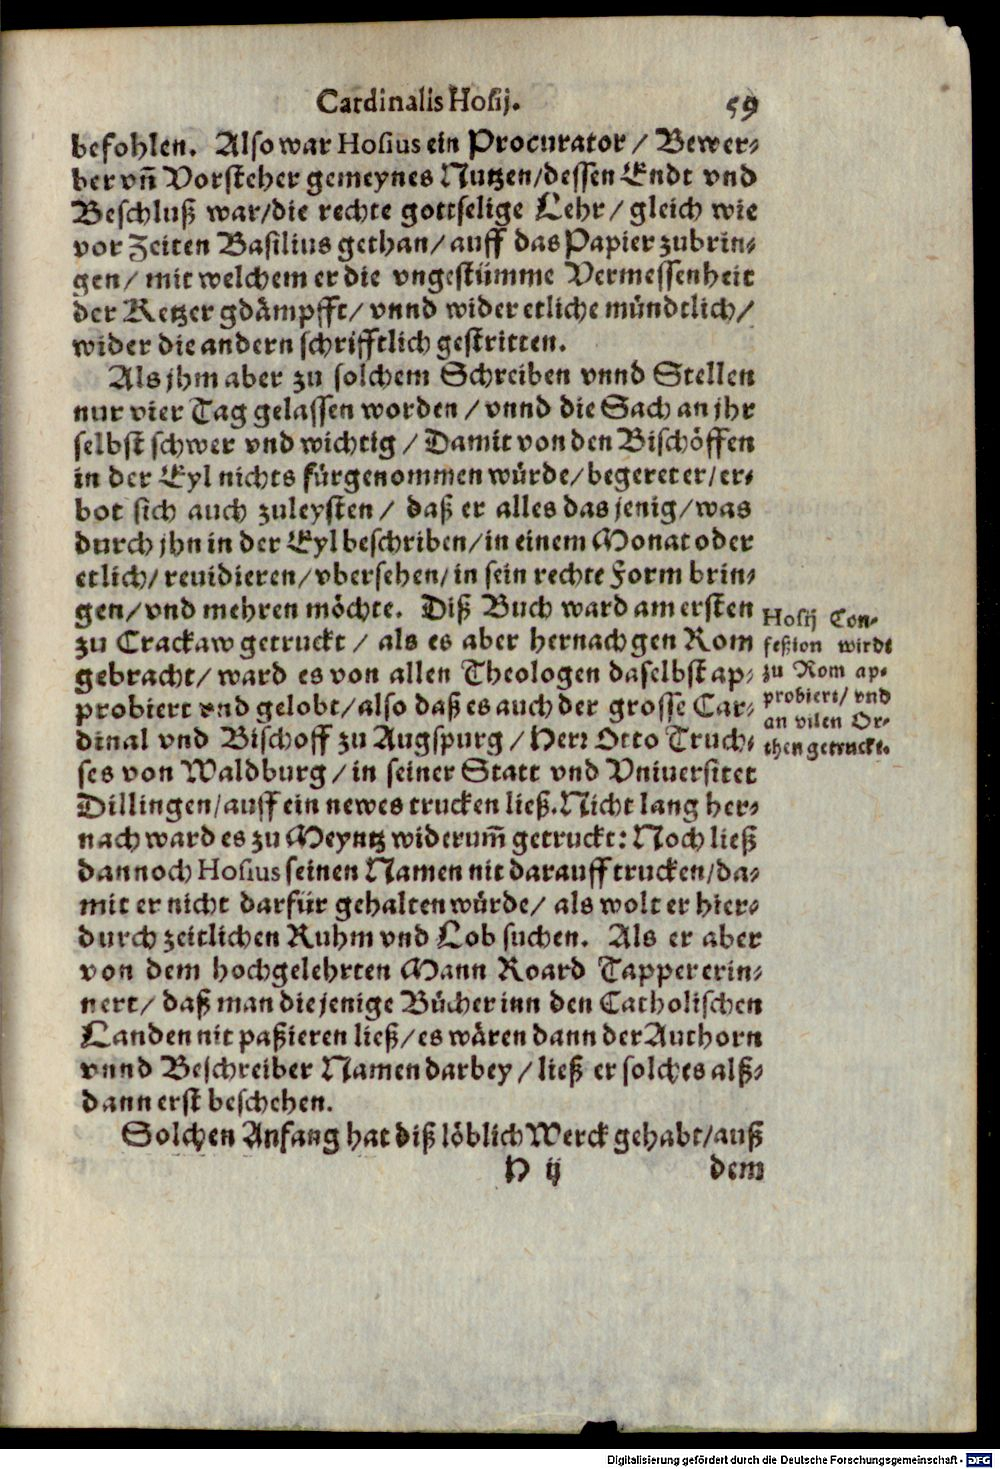 Cardinalis Hosij. 59
befohlen. Also war Hosius ein Procurator / Bewer-
ber vñ Vorsteher gemeynes Nutzen/dessen Endt vnd
Beschluß war/die rechte gottselige Lehr/ gleich wie
vor Zeiten Basilius gethan/ auff das Papier zubrin-
gen/ mit welchem er die vngestümme Vermessenheit
der Ketzer gdämpfft/ vnnd wider etliche mündtlich/
wider die andern schrifftlich gestritten.
Als jhm aber zu solchem Schreiben vnnd Stellen
nur vier Tag gelassen worden / vnnd die Sach an jhr
selbst schwer vnd wichtig / Damit von den Bischöffen
in der Eyl nichts fürgenommen würde/ begeret er/ er-
bot sich auch zuleysten / daß er alles das jenig/was
durch jhn in der Eyl beschriben/in einem Monat oder
etlich/ reuidieren/ vbersehen/ in sein rechte Form brin-
gen/ vnd mehren möchte. Diß Buch ward am ersten
zu Crackaw getruckt / als es aber hernach gen Rom
gebracht/ ward es von allen Theologen daselbst ap-
probiert vnd gelobt/also daß es auch der grosse Car-
dinal vnd Bischoff zu Augspurg / Herr Otto Truch-
ses von Waldburg / in seiner Statt vnd Vniuersitet
Dillingen/auff ein newes trucken ließ. Nicht lang her-
nach ward es zu Meyntz widerum̃ getruckt: Noch ließ
dannoch Hosius seinen Namen nit darauff trucken/da-
mit er nicht darfür gehalten würde/ als wolt er hier-
durch zeitlichen Ruhm vnd Lob suchen. Als er aber
von dem hochgelehrten Mann Roard Tapper erin-
nert/ daß man die jenige Bücher inn den Catholischen
Landen nit paßieren ließ/ es wären dann der Authorn
vnnd Beschreiber Namen darbey / ließ er solches alß-
dann erst beschehen.
Solchen Anfang hat diß löblich Werck gehabt/auß
H ij dem
Hosij Con-
feßion wirdt
zu Rom ap-
probiert/ vnd
an vilen Or-
then getruckt.
Digitalisierung gefördert durch die Deutsche Forschungsgemeinschaft - DFG